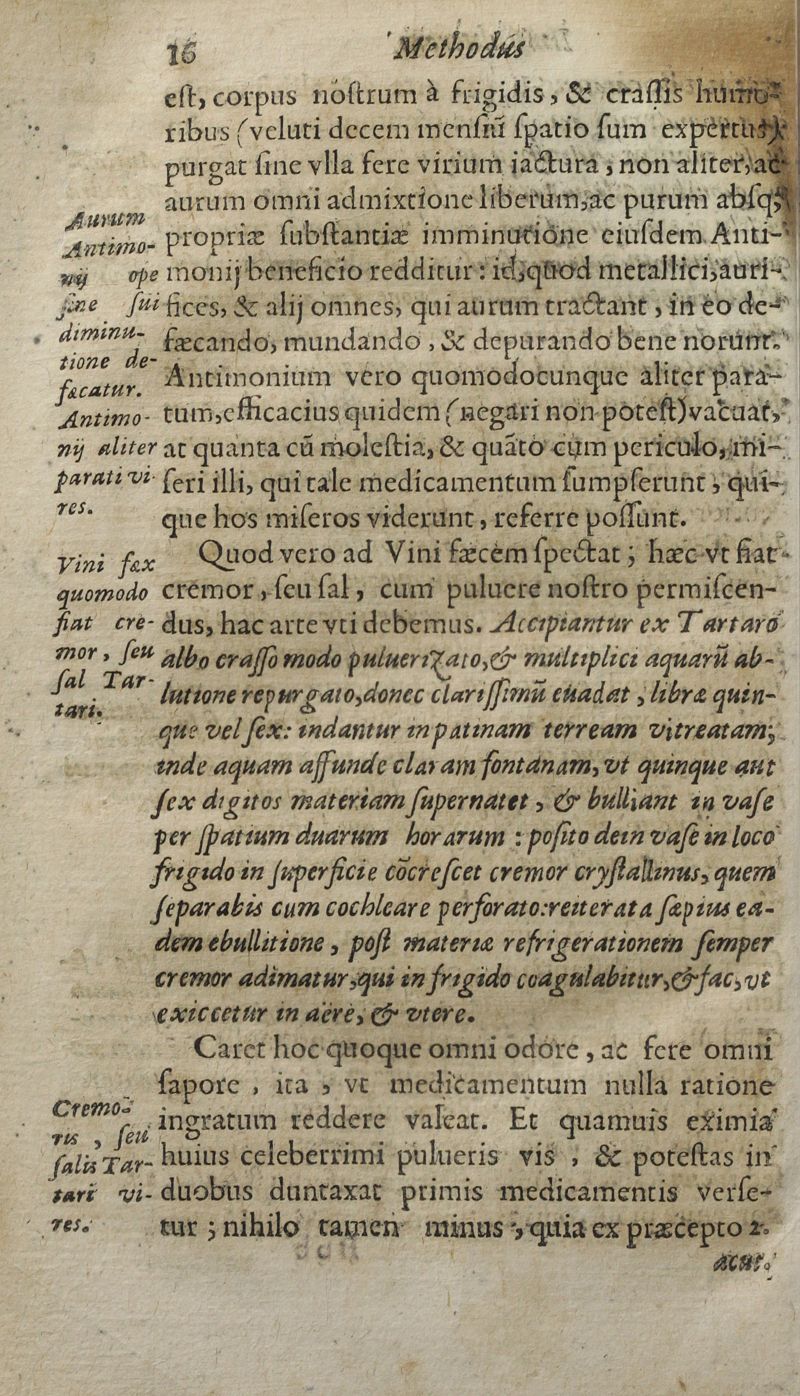 16 Methodus
eſt, corpus noſtrum à frigidis, & craſſis humo-
ribus (veluti decem menſiū ſpatio ſum expertus)
purgat ſine vlla fere virium iactura, non aliter, ac
aurum omni admixtione liberum, ac purum abſq;
propriæ ſubſtantiæ imminutione eiuſdem Anti-
monij beneficio redditur: id, quod metallici, auri-
fices, & alij omnes, qui aurum tractant, in eo de-
fæcando, mundando, & depurando bene norunt.
Antimonium vero quomodocunque aliter para-
tum, efficacius quidem (negari non poteſt) vacuat,
at quanta cū moleſtia, & quāto cum periculo, mi-
ſeri illi, qui tale medicamentum ſumpſerunt, qui-
que hos miſeros viderunt, referre poſſunt.
Aurum
Antimo-
nij ope
ſine ſui
diminu-
tione de-
fæcatur.
Antimo-
nij aliter
parati vi-
res.
Quod vero ad Vini fæcem ſpectat; hæc vt fiat
cremor, ſeu ſal, cum puluere noſtro permiſcen-
dus, hac arte vti debemus. Accipiantur ex Tartaro
albo craſſo modo pulueriZato, & multiplici aquarū ab-
lutione repurgato, donec clariſſimū euadat, libræ quin-
que vel ſex: indantur in patinam terream vitreatam;
inde aquam affunde claram fontanam, vt quinque aut
ſex digitos materiam ſupernatet, & bulliant in vaſe
per ſpatium duarum horarum: poſito dein vaſe in loco
frigido in ſuperficie cōcreſcet cremor cryſtallinus, quem
ſeparabis cum cochleare perforato: reiterata ſæpius ea-
dem ebullitione, poſt materiæ refrigerationem ſemper
cremor adimatur, qui in frigido coagulabitur, & fac, vt
exiccetur in aëre, & vtere.
Vini fæx
quomodo
fiat cre-
mor, ſeu
ſal Tar-
tari.
Caret hoc quoque omni odore, ac fere omni
ſapore, ita, vt medicamentum nulla ratione
ingratum reddere valeat. Et quamuis eximia
huius celeberrimi pulueris vis, & poteſtas in
duobus duntaxat primis medicamentis verſe-
tur; nihilo tamen minus, quia ex præcepto 2.
Cremo-
ris, ſeu
ſalis Tar-
tari vi-
res.
acut.